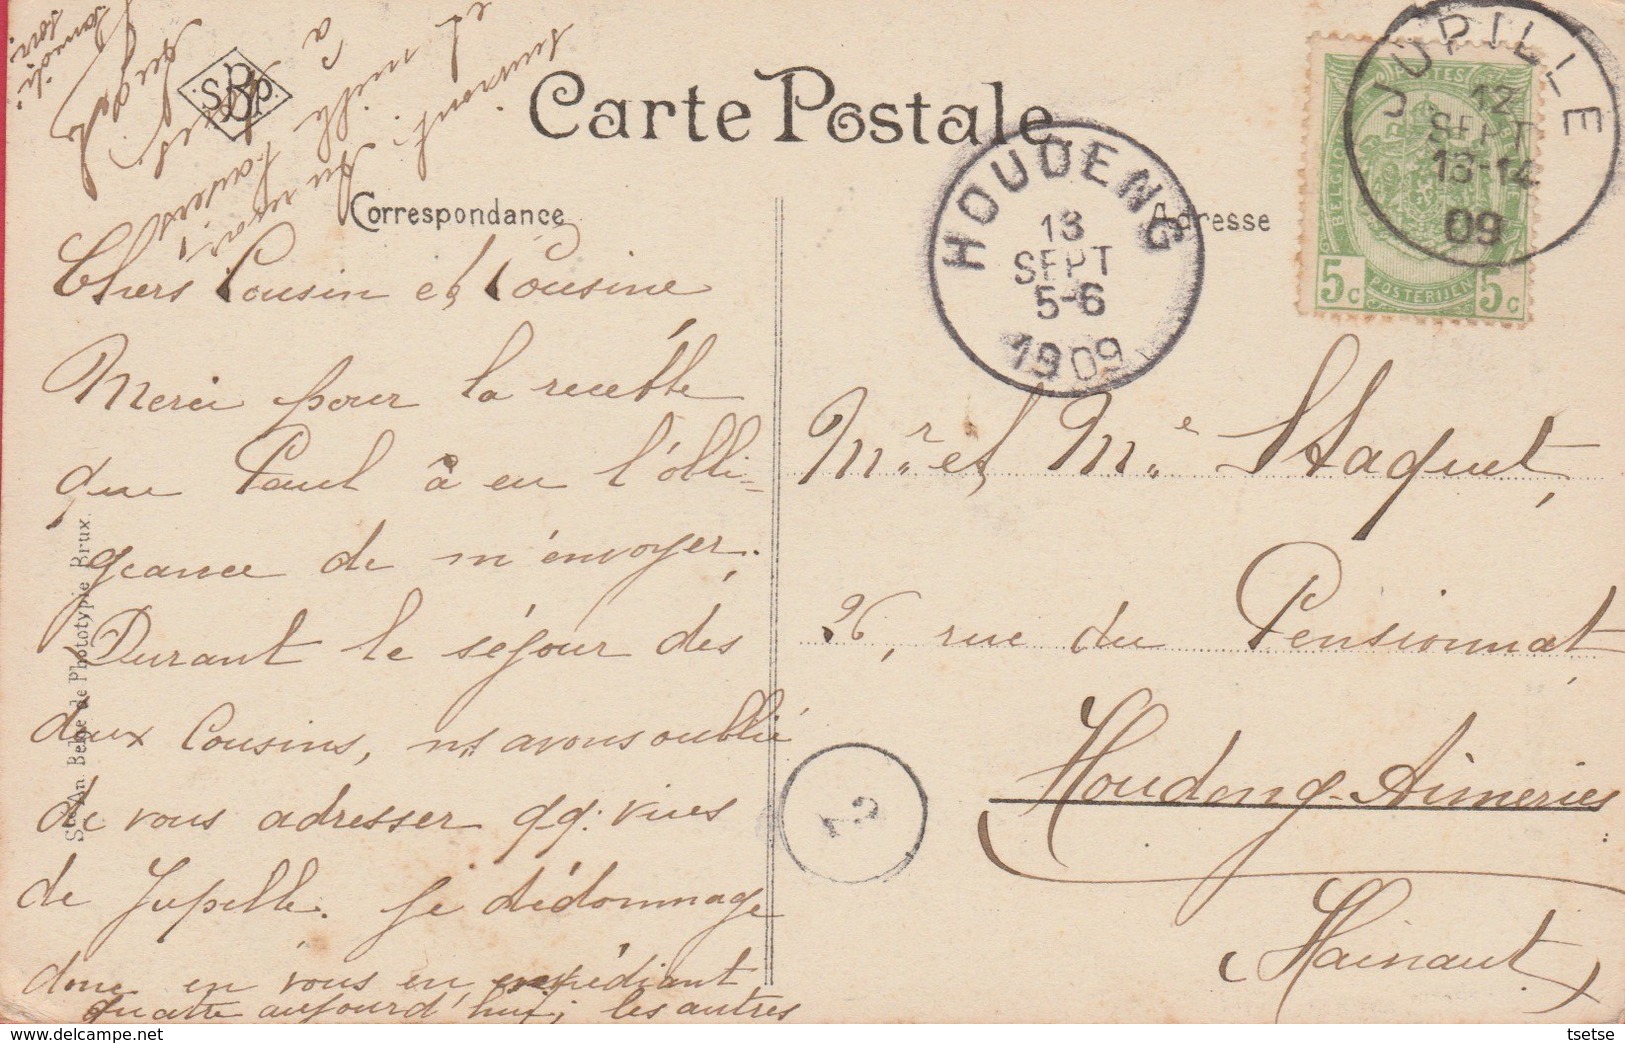 Carte Postale
Correspondance
Adresse
SBP
JUPILLE
12
SEPT
13-14
09
POSTES
BELGIQUE
5c POSTERIJEN 5c
HOUDENG
13
SEPT
5-6
1909
Chers Cousin et Cousine
Merci pour la recette
que Paul à eu l'obli-
geance de m'envoyer.
Durant le séjour des
deux Cousins, ns avons oublié
de vous adresser qq: vues
de Jupille. Je dédommage
donc en vous en expédiant
quatre aujourd'hui; les autres
suivront.
et mille
à
Samedi
soir
Mr. et Me. Staquet,
26, rue du Pensionnat
Houdeng-Aimeries
(Hainaut)
2
Ste An Belge de Phototypie Brux.
tsetse